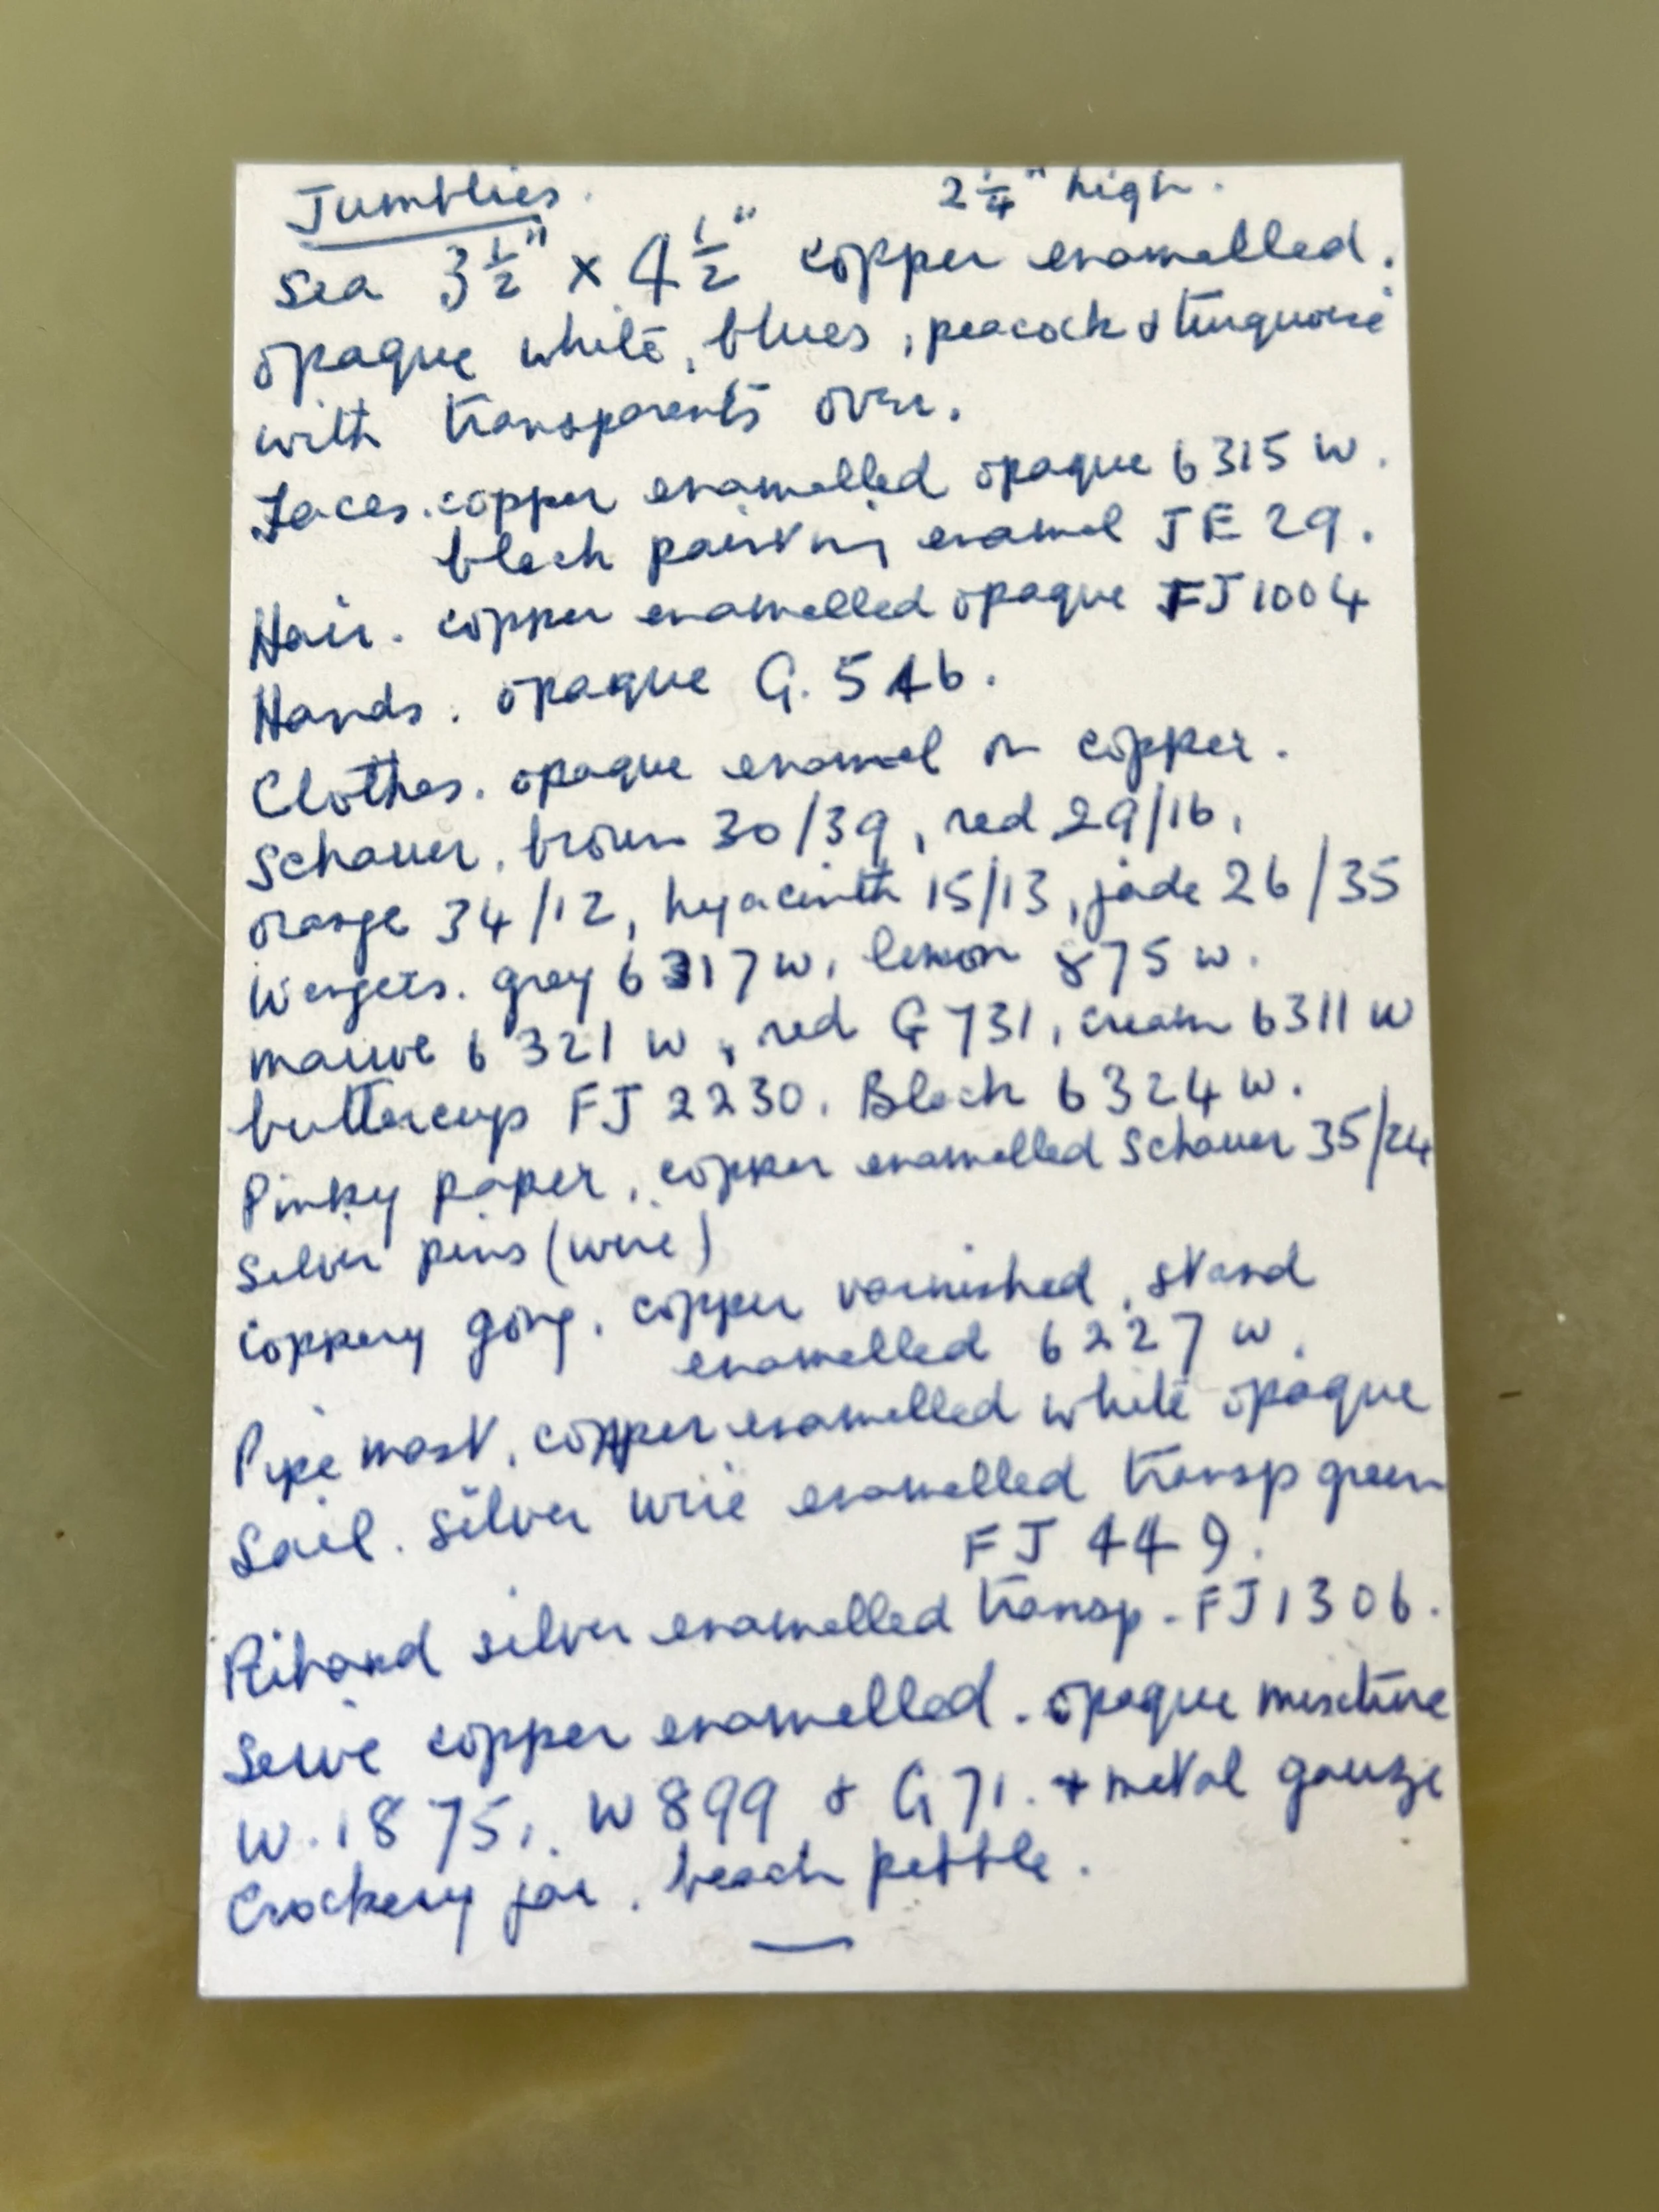 Jumblies. 2¼" high.
Sea 3½" x 4½" copper enamelled.
opaque white, blues, peacock & turquoise
with transparents over.
Faces. copper enamelled opaque 6315 W.
black painting enamel JE 29.
Hair. copper enamelled opaque FJ 1004
Hands. opaque G. 546.
Clothes. opaque enamel on copper.
Schauer, brown 30/39, red 29/16,
orange 34/12, hyacinth 15/13, jade 26/35
Wengers. grey 6317 W, lemon 875 W.
mauve 6321 W, red G 731, cream 6311 W
buttercup FJ 2230. Black 6324 W.
Pinky paper, copper enamelled Schauer 35/24
Silver pins (wire)
Coppery gong. copper varnished, stand
enamelled 6227 W.
Pipe mast, copper enamelled white opaque
Sail. silver wire enamelled transp green
FJ 449.
Riband silver enamelled transp - FJ 1306.
Seive copper enamelled. opaque mixture
W. 1875, W 899 & G 71. + metal gauze
Crockery jar. beach pebble.